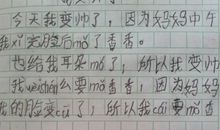 今天我变帅了，因为妈妈中午
我xǐ完脸后mǒ了香香。
也给我耳朵mǒ了，所以我变帅
我wèishén么要mǒ香香，因为妈妈
我的脸变cū了，所以我cái要mǒ香